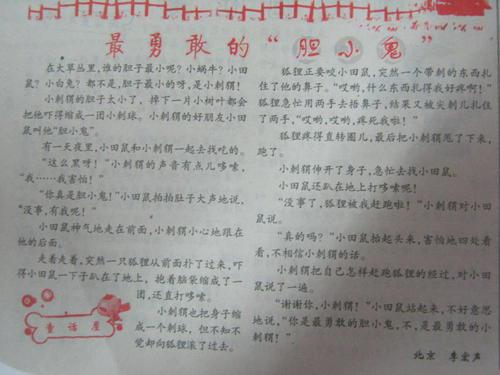 最勇敢的“胆小鬼”
在大草丛里，谁的胆子最小呢？小蜗牛？小田
鼠？小白兔？都不是，胆子最小的呀，是小刺猬！
小刺猬的胆子太小了，掉下一片小树叶都会
把他吓得缩成一团小刺球。小刺猬的好朋友小田
鼠叫他“胆小鬼”。
有一天夜里，小田鼠和小刺猬一起去找吃的。
“这么黑呀！”小刺猬的声音有点儿哆嗦，
“我……我害怕！”
“你真是胆小鬼！”小田鼠拍拍肚子大声地说，
“没事，有我呢！”
小田鼠神气地走在前面，小刺猬小心地跟在
他的后面。
走着走着，突然一只狐狸从前面扑了过来，吓
得小田鼠一下子趴在了地上，抱着脑袋缩成了一
团，还直打哆嗦。
小刺猬也把身子缩
成一个刺球，但不知不
觉却向狐狸滚了过去。
童话屋
狐狸正要咬小田鼠，突然一个带刺的东西扎
住了他的鼻子。“哎哟，什么东西扎得我好疼啊！”
狐狸急忙用两手去捂鼻子，结果又被尖刺儿扎住
了两手，“哎哟，哎哟，疼死我啦！”
狐狸疼得直转圈儿，最后把小刺猬甩了下来，
跑了。
小刺猬伸开了身子，急忙去找小田鼠。
小田鼠还趴在地上打哆嗦呢！
“没事了，狐狸被我赶跑啦！”小刺猬对小田
鼠说。
“真的吗？”小田鼠抬起头来，害怕地四处看
看，不相信小刺猬的话。
小刺猬把自己怎样赶跑狐狸的经过，对小田
鼠说了一遍。
“谢谢你，小刺猬！”小田鼠站起来，不好意思
地说，“你是最勇敢的胆小鬼，不，是最勇敢的小刺
猬！”
北京 李宏声